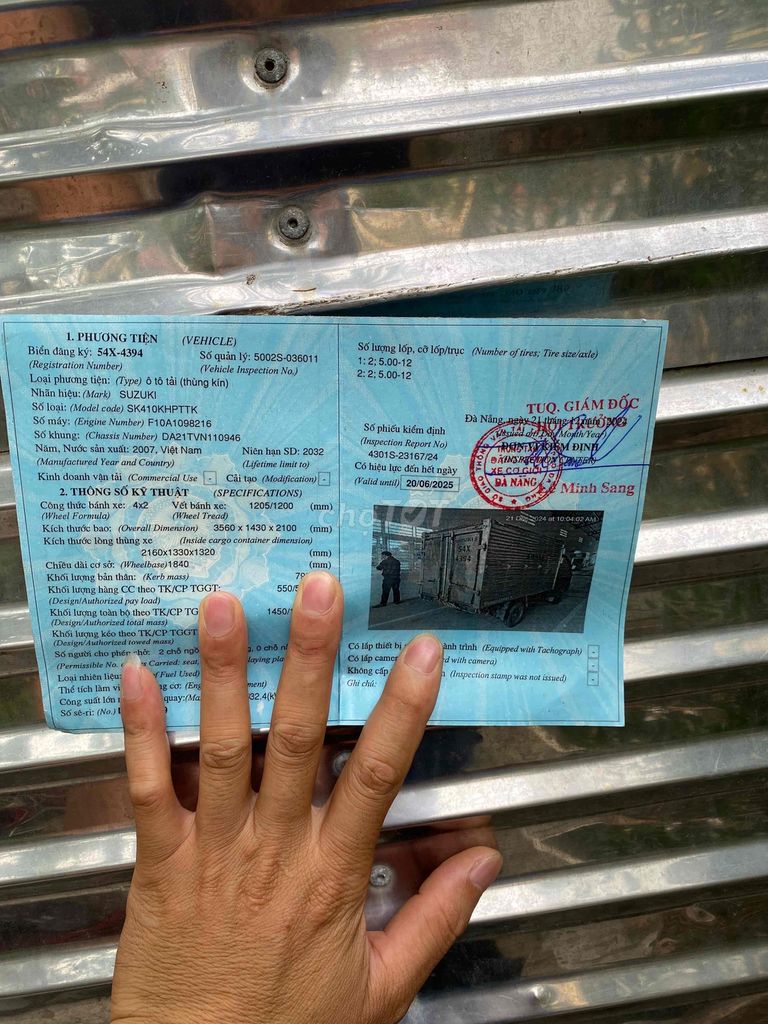 1. PHƯƠNG TIỆN (VEHICLE)
Biển đăng ký: 54X-4394 Số quản lý: 5002S-036011
(Registration Number) (Vehicle Inspection No.)
Loại phương tiện: (Type) ô tô tải (thùng kín)
Nhãn hiệu: (Mark) SUZUKI
Số loại: (Model code) SK410KHPTTK
Số máy: (Engine Number) F10A1098216
Số khung: (Chassis Number) DA21TVN110946
Năm, Nước sản xuất: 2007, Việt Nam Niên hạn SD: 2032
(Manufactured Year and Country) (Lifetime limit to)
Kinh doanh vận tải (Commercial Use) - Cải tạo (Modification) -
2. THÔNG SỐ KỸ THUẬT (SPECIFICATIONS)
Công thức bánh xe: 4x2 Vết bánh xe: 1205/1200 (mm)
(Wheel Formula) (Wheel Tread)
Kích thước bao: (Overall Dimension) 3560 x 1430 x 2100 (mm)
Kích thước lòng thùng xe (Inside cargo container dimension)
2160x1330x1320 (mm)
Chiều dài cơ sở: (Wheelbase) 1840 (mm)
Khối lượng bản thân: (Kerb mass)
Khối lượng hàng CC theo TK/CP TGGT: 550/
(Design/Authorized pay load)
Khối lượng toàn bộ theo TK/CP 1450/
(Design/Authorized total mass)
Khối lượng kéo theo TK/CP TGGT
(Design/Authorized towed mass)
Số người cho phép chở: 2 chỗ
(Permissible No. Carried: seat,
Loại nhiên liệu:
Thể tích làm
Công suất lớn quay:
Số sê-ri: (No.)
Số lượng lốp, cỡ lốp/trục (Number of tires; Tire size/axle)
1: 2; 5.00-12
2: 2; 5.00-12
TUQ. GIÁM ĐỐC
Đà Nẵng, ngày 21 tháng
Số phiếu kiểm định
(Inspection Report No)
4301S-23167/24
ĐƠN VỊ KIỂM ĐỊNH
XE CƠ GIỚI
ĐÀ NẴNG
Có hiệu lực đến hết ngày
(Valid until) 20/06/2025
Minh Sang
21 Dec 2024 at 10:04:02 AM
54X
4394
Chợ TỐT
Có lắp thiết bị hành trình (Equipped with Tachograph) -
Có lắp camera with camera) -
Không cấp (Inspection stamp was not issued) -
Ghi chú: